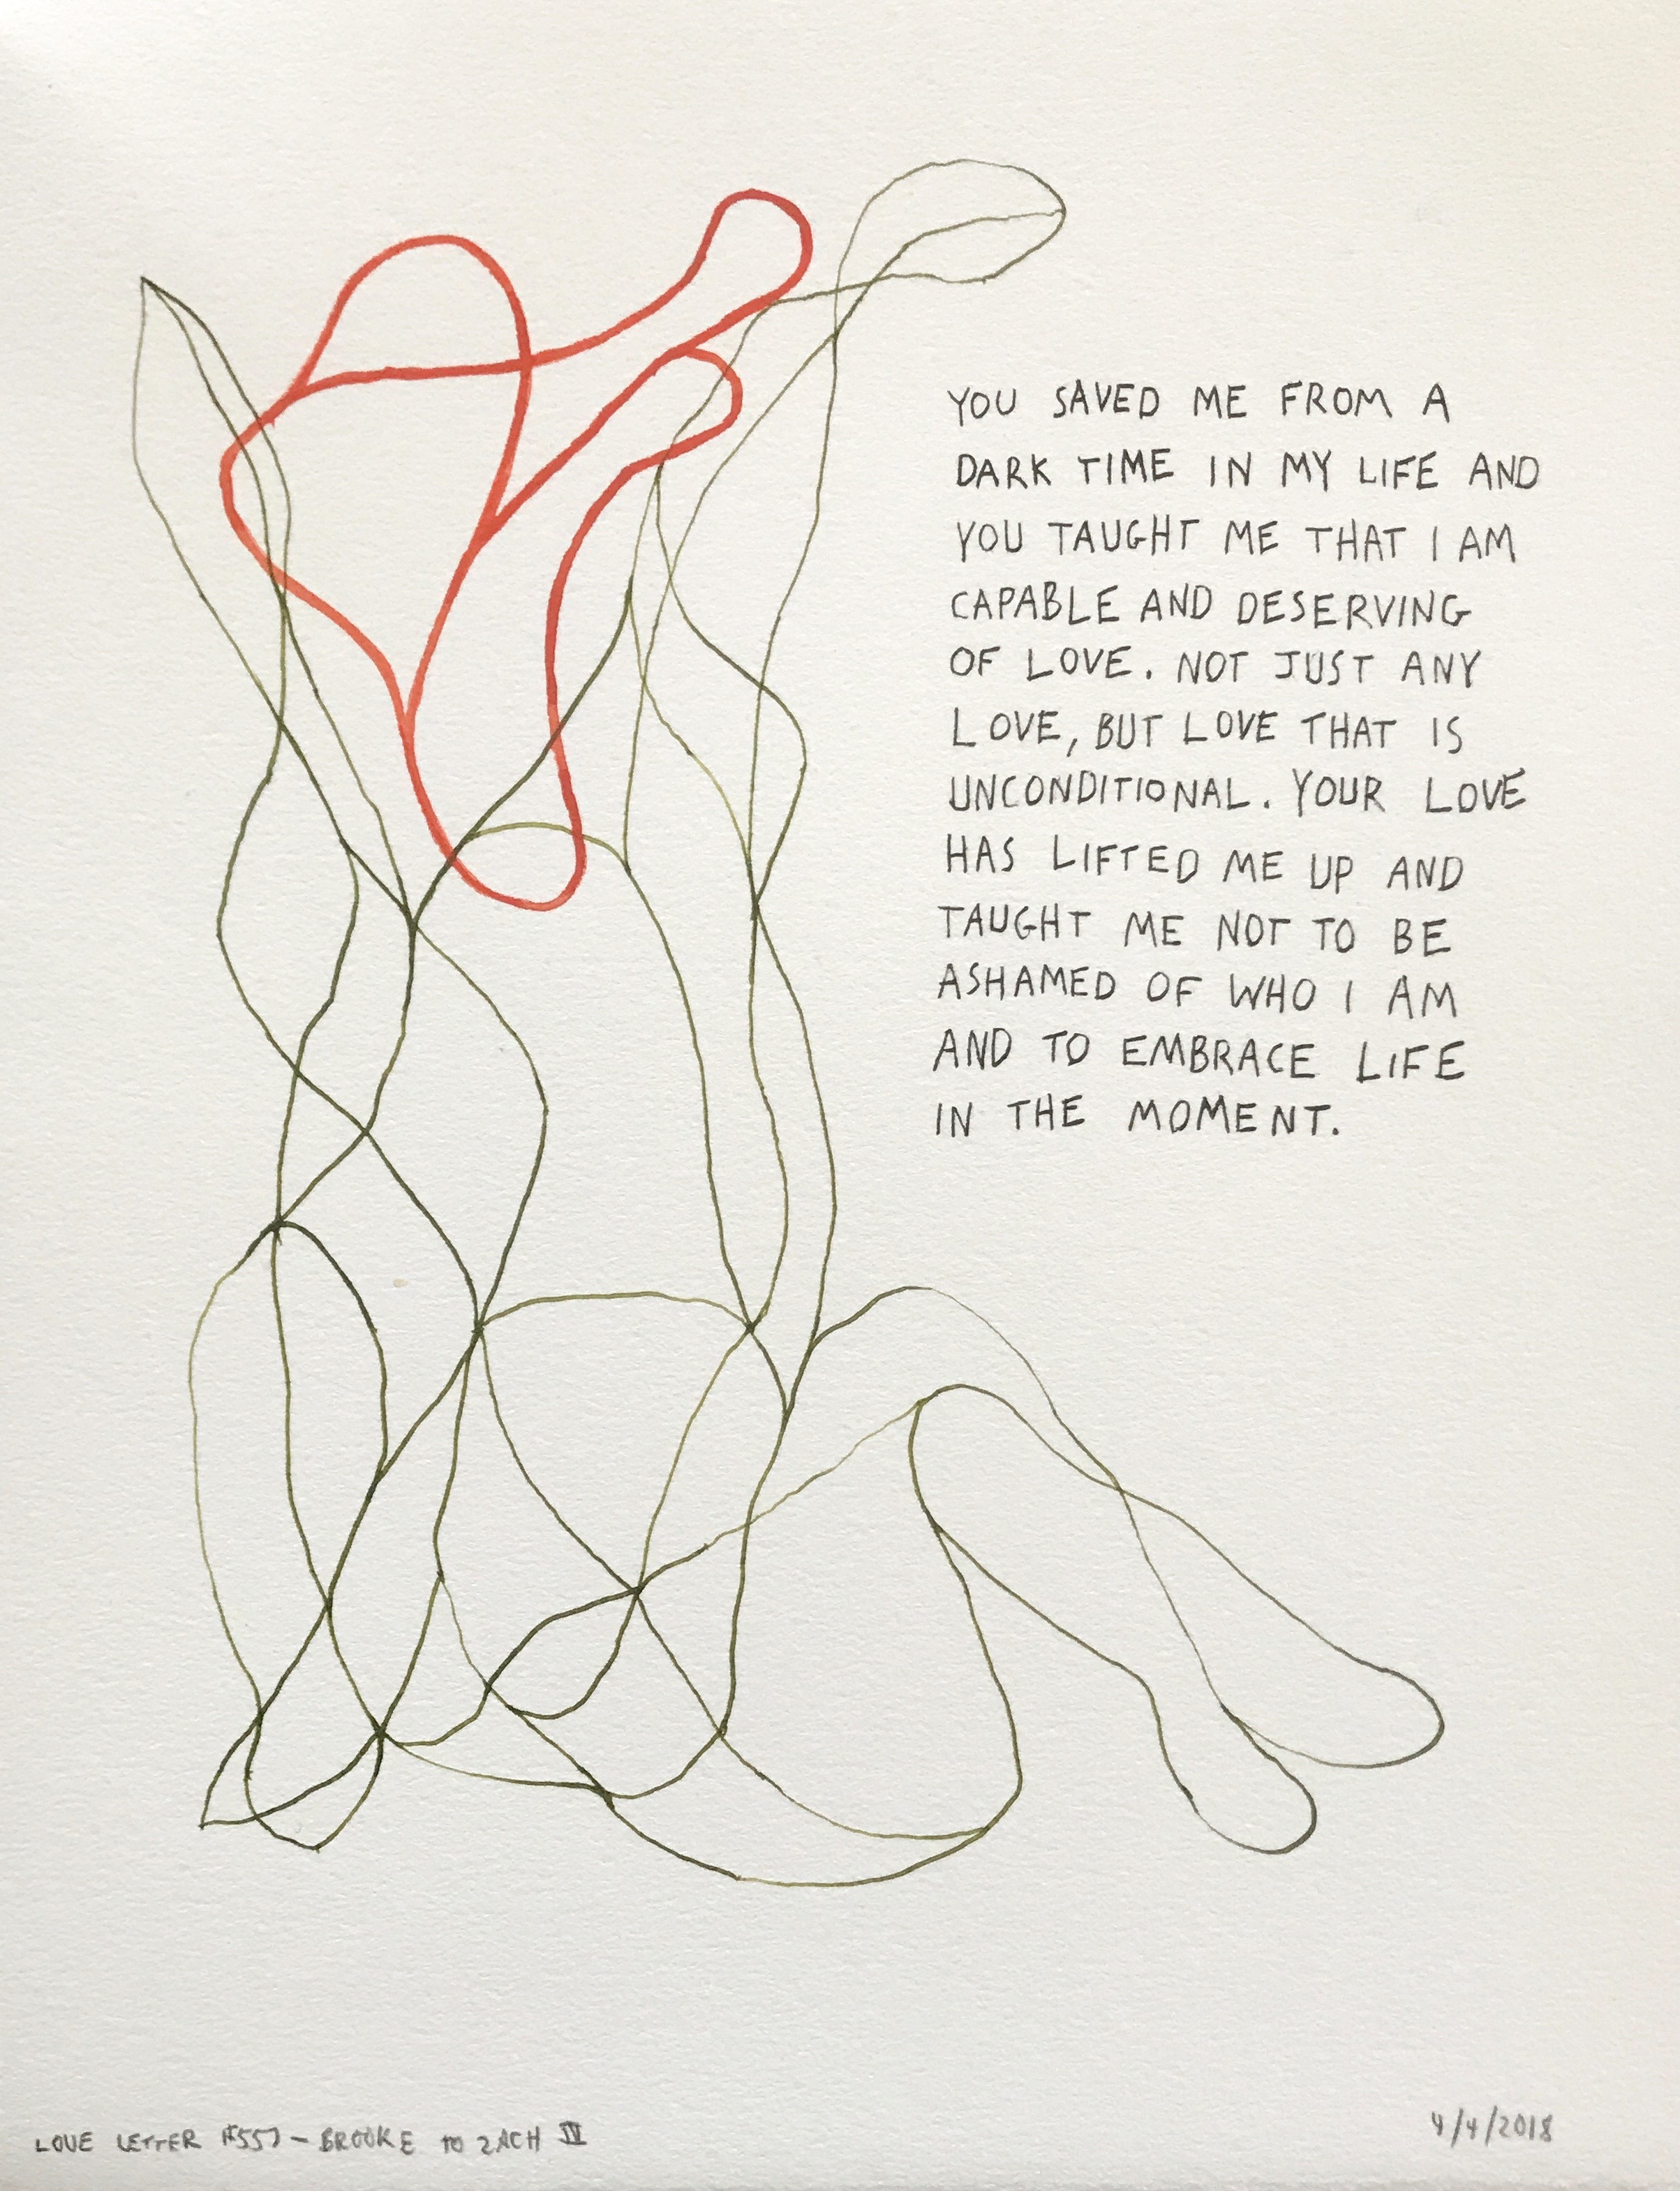 YOU SAVED ME FROM A
DARK TIME IN MY LIFE AND
YOU TAUGHT ME THAT I AM
CAPABLE AND DESERVING
OF LOVE. NOT JUST ANY
LOVE, BUT LOVE THAT IS
UNCONDITIONAL. YOUR LOVE
HAS LIFTED ME UP AND
TAUGHT ME NOT TO BE
ASHAMED OF WHO I AM
AND TO EMBRACE LIFE
IN THE MOMENT.
LOVE LETTER #557 – BROOKE TO ZACH IV
4/4/2018